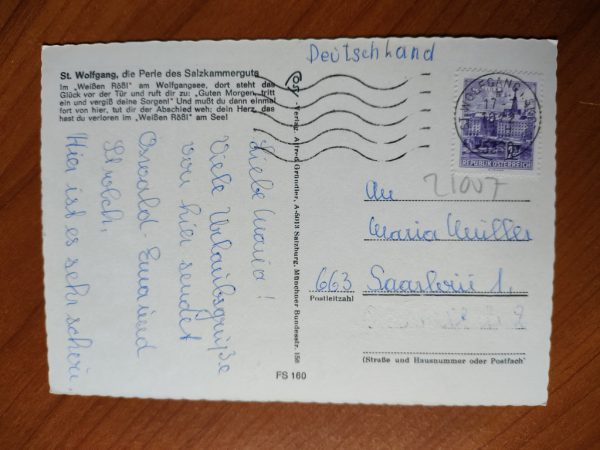 Deutschland
St. Wolfgang, die Perle des Salzkammerguts
Im „Weißen Rößl" am Wolfgangsee, dort steht das
Glück vor der Tür und ruft dir zu: „Guten Morgen, tritt
ein und vergiß deine Sorgen!" Und mußt du dann einmal
fort von hier, tut dir der Abschied weh: dein Herz, das
hast du verloren im „Weißen Rößl" am See!
Liebe Maria!
Viele Urlaubsgrüße
von hier sendet
Oswald - Ema und
Hier ist es sehr schön.
Cosy-Verlag Alfred Gründler, A-5013 Salzburg, Münchner Bundesstr. 156
FS 160
ST. WOLFGANG
17.
REPUBLIK ÖSTERREICH
21007
An
Maria Müller
663 Saarlouis 1.
Postleitzahl
(Straße und Hausnummer oder Postfach)